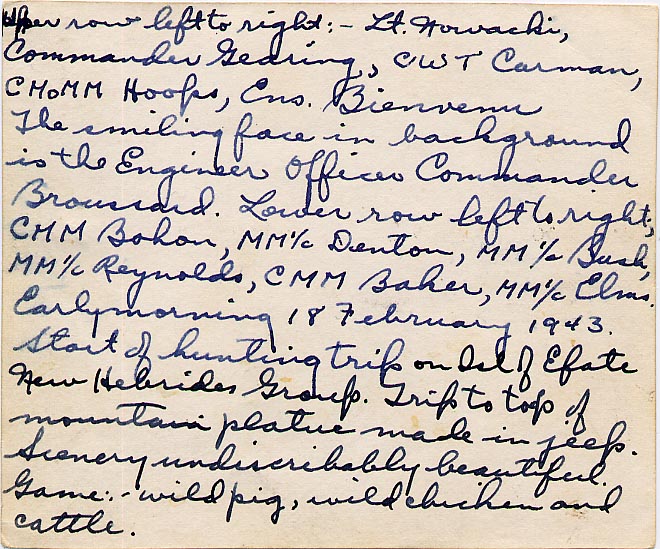 Upper row left to right:- Lt. Nowacki,
Commander Gearing, CWT Carman,
CMoMM Hoops, Ens. Bienvenu
The smiling face in background
is the Engineer Officer Commander
Broussard. Lower row left to right;
CMM Bohon, MM1/c Denton, MM1/c Bush,
MM1/c Reynolds, CMM Baker, MM1/c Elms.
Early morning 18 February 1943.
Start of hunting trip on Isl of Efate
New Hebrides Group. Trip to top of
mountain platue made in jeep.
Scenery undiscribably beautiful.
Game:- wild pig, wild chicken and
cattle.